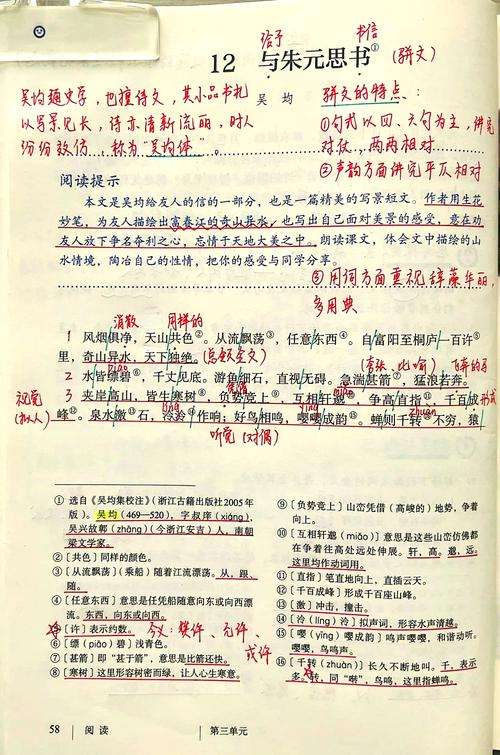 给予
书信
12 与朱元思书①
(骈文)
吴均
吴均通史学，也擅诗文，其小品书札
以写景见长，诗亦清新流丽，时人
纷纷效仿，称为“吴均体”
骈文的特点：
①句式以四、六句为主，讲究
对仗，两两相对
②声韵方面讲究平仄相对
阅读提示
本文是吴均给友人的信的一部分，也是一篇精美的写景短文。作者用生花
妙笔，为友人描绘出富春江的奇山异水，也写出自己面对美景的感受，意在劝
友人放下争名夺利之心，忘情于天地大美之中。朗读课文，体会文中描绘的山
水情境，陶冶自己的性情，把你的感受与同学分享。
③用词方面重视辞藻华丽，
多用典
消散
同样的
1 风烟俱净，天山共色②。从流飘荡③，任意东西④。自富阳至桐庐一百许⑤
里，奇山异水，天下独绝。(总领全文)
piǎo
(夸张、比喻)
飞奔的马
2 水皆缥碧⑥，千丈见底。游鱼细石，直视无碍。急湍甚箭⑦，猛浪若奔。
视觉
(拟人)
3 夹岸高山，皆生寒树⑧，负势竞上⑨，互相轩邈⑩，争高直指⑪，千百成
形成
líng
yīng
zhuàn
峰⑫。泉水激⑬石，泠泠⑭作响；好鸟相鸣，嘤嘤成韵⑮。蝉则千转⑯不穷，猿
听觉 (对偶)
① 选自《吴均集校注》(浙江古籍出版社2005年
版)。吴均(469—520)，字叔庠(xiáng)，
吴兴故鄣(zhāng)(今浙江安吉)人，南朝
梁文学家。
②〔共色〕同样的颜色。
③〔从流飘荡〕(乘船)随着江流漂荡。从，跟、
随。
④〔任意东西〕意思是任凭船随意向东或向西漂
流。东西，向东或向西。
⑤〔许〕表示约数。
今义：赞许、允许、
或许
⑥〔缥(piǎo)碧〕浅青色。
⑦〔甚箭〕即“甚于箭”，意思是比箭还快。
⑧〔寒树〕这里形容树密而绿，让人心生寒意。
⑨〔负势竞上〕山峦凭借(高峻的)地势，争着
向上。
⑩〔互相轩邈(miǎo)〕意思是这些山峦仿佛都
在争着往高处远处伸展。轩，高。邈，远。
这里均作动词用。
⑪〔直指〕笔直地向上，直插云天。
⑫〔千百成峰〕形成千百座山峰。
⑬〔激〕冲击，撞击。
⑭〔泠(líng)泠〕拟声词，形容水声清越。
⑮〔嘤(yīng)嘤成韵〕鸣声嘤嘤，和谐动听。
嘤嘤，鸟鸣声。
⑯〔千转(zhuàn)〕长久不断地叫。千，表示
多。转，同“啭”，鸟鸣，这里指蝉鸣。
58 阅读
第三单元